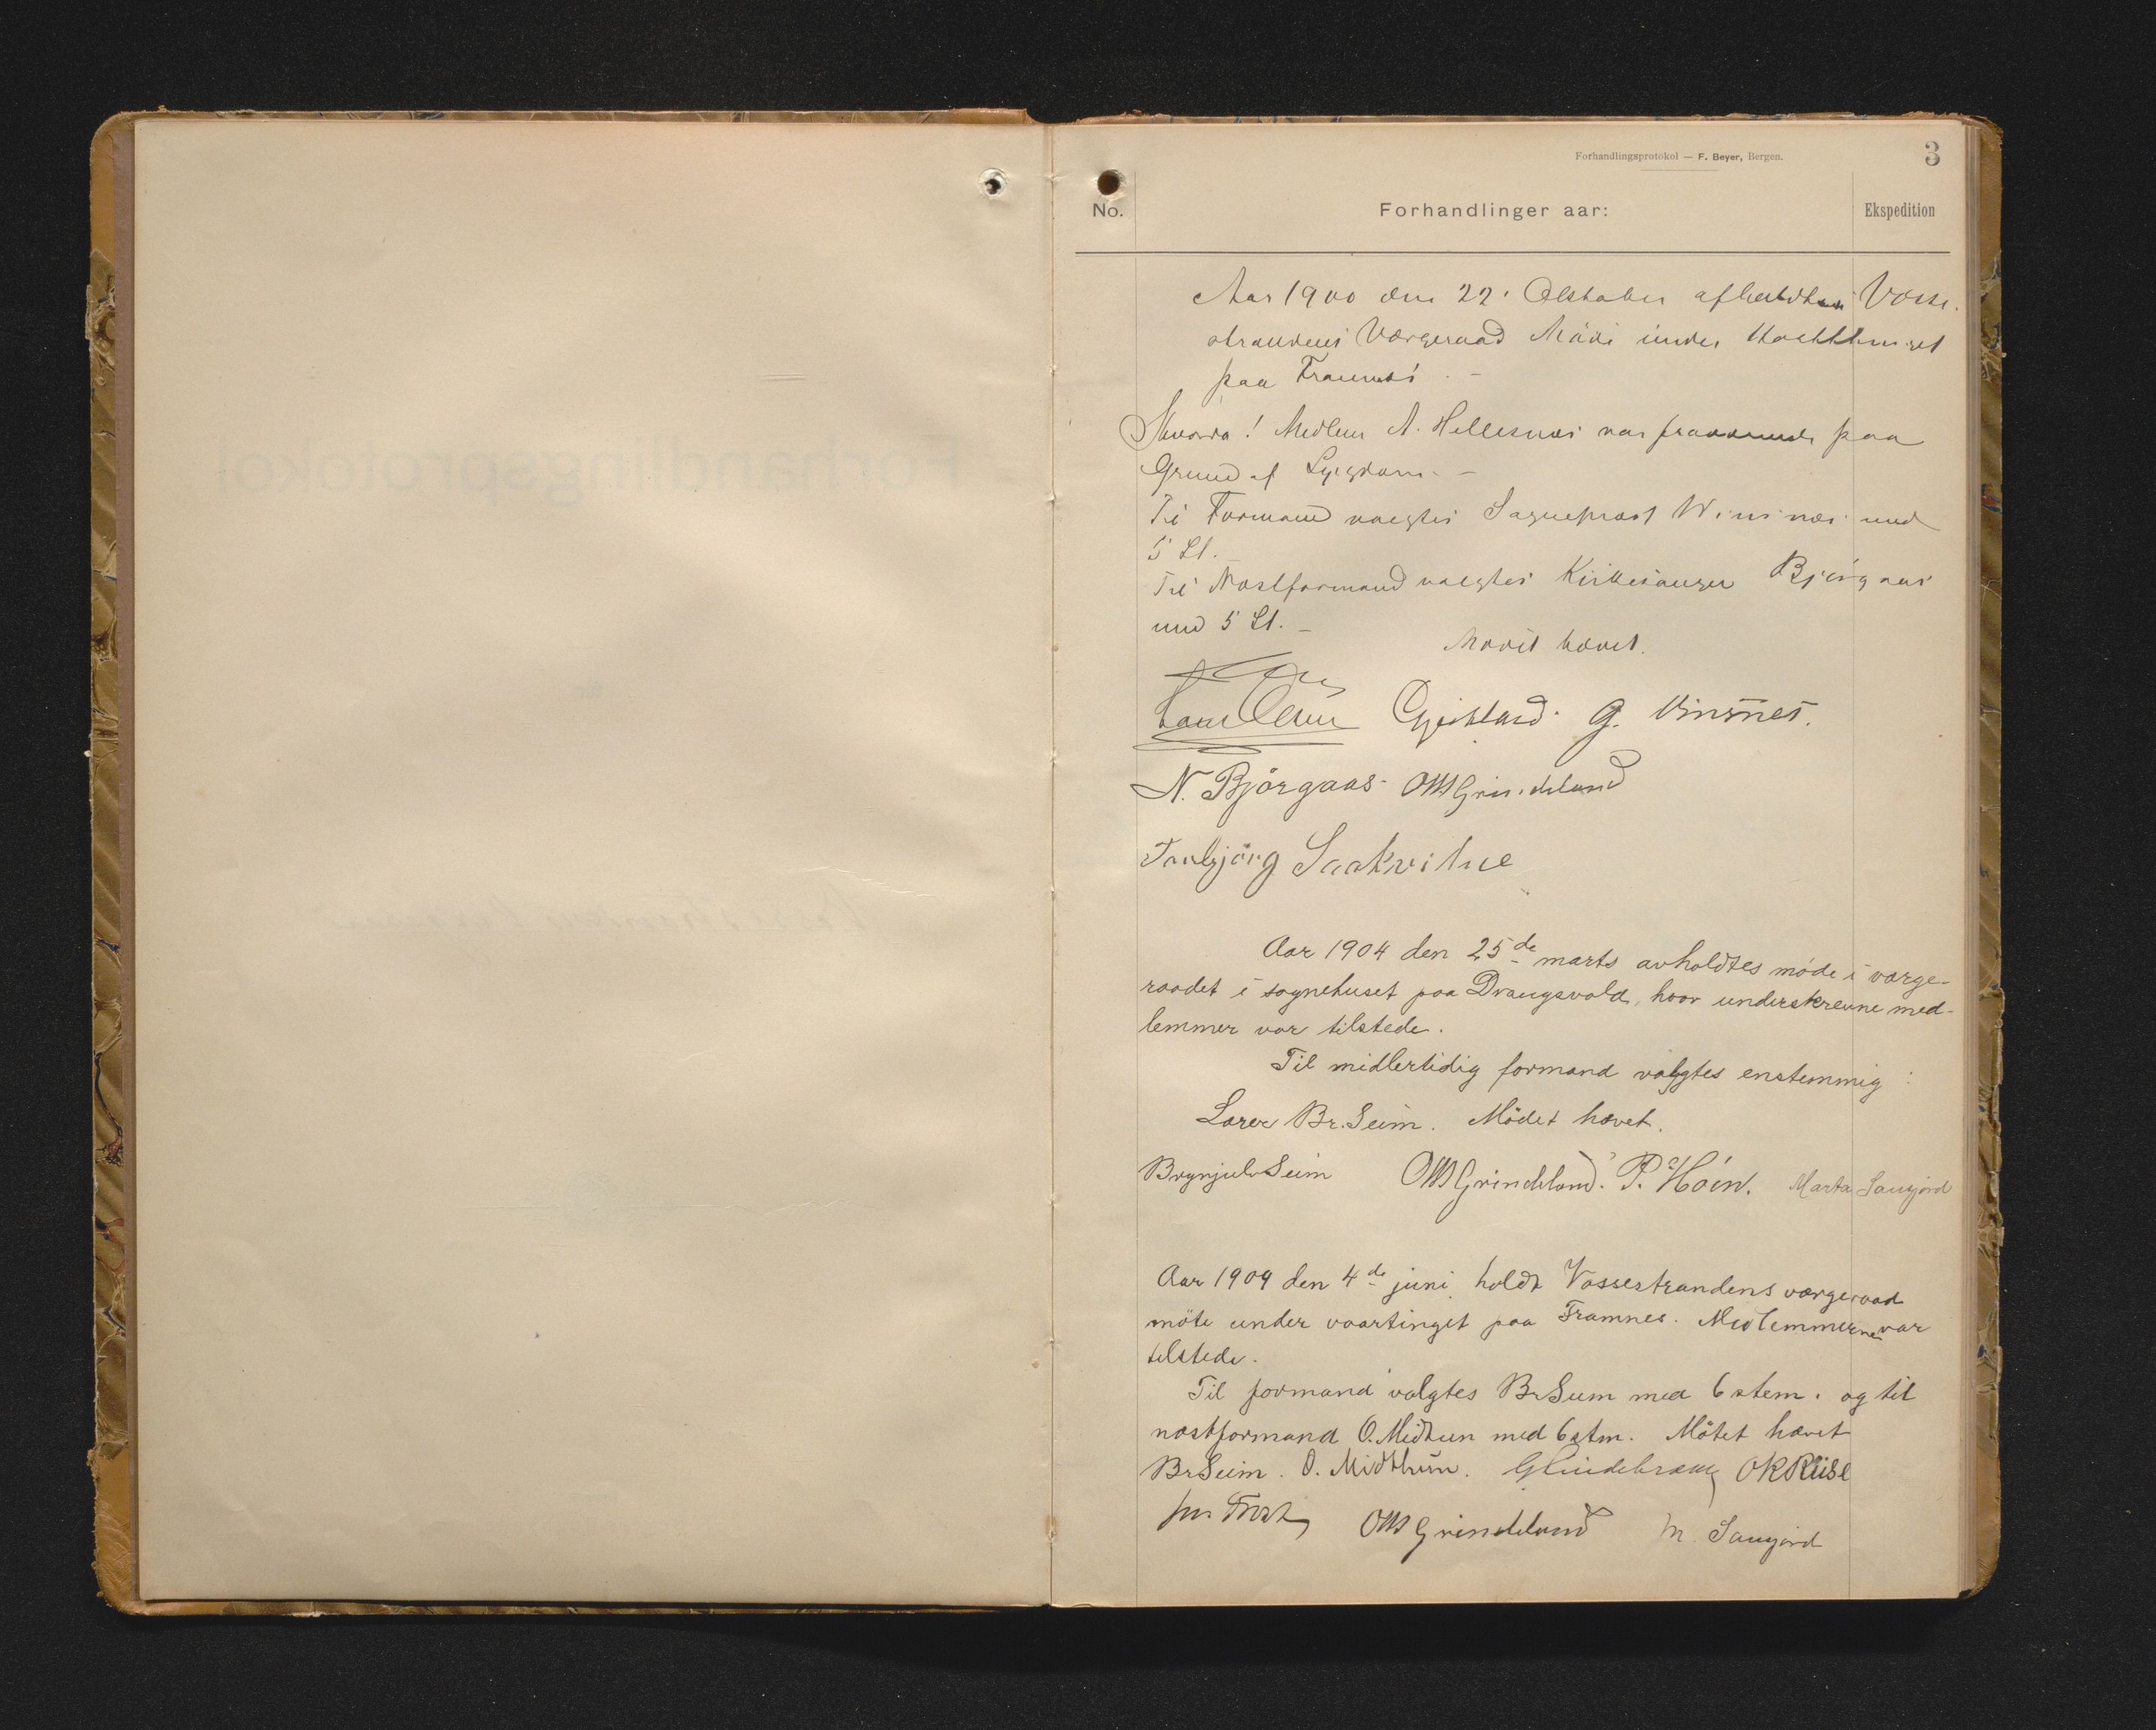 Forhandlingsprotokol — F. Beyer, Bergen.
3
No.
Forhandlinger aar:
Ekspedition
Aar 1900 den 22. Oktober afholdtes Vosse-
strandens Værgeraad Möde under Høstthinget
paa Framnæs. -
Medlem A. Hellesnæs var fraværende paa
Grund af Sygdom. -
Til Formand valgtes Sogneprest Winsnes med
5 St.
Til Næstformand valgtes Kirkesanger Björgaas
med 5 St. -
Mødet hævet.
Gjeitland. G. Vinsnes.
N. Björgaas OM Grindeland
Torbjörg Saakvitne
Aar 1904 den 25de marts avholdtes möde i værge-
raadet i sognehuset paa Draugsvold, hvor underskrevne med-
lemmer var tilstede.
Til midlertidig formand valgtes enstemmig:
Lærer Br. Seim. Mödet hævet.
Brynjulv Seim OM Grindeland. P. Höin. Marta Saugjord
Aar 1909 den 4de juni holdt Vossestrandens værgeraad
möte under vaartinget paa Framnes. Medlemmerne var
tilstede.
Til formand valgtes Br Seim med 6 stem. og til
næstformand O. Midtun med 6 stm. Mötet hævet
Br Seim. O. Midthun. G Lindebræk OK Rüse
OM Grindeland M. Saugjord